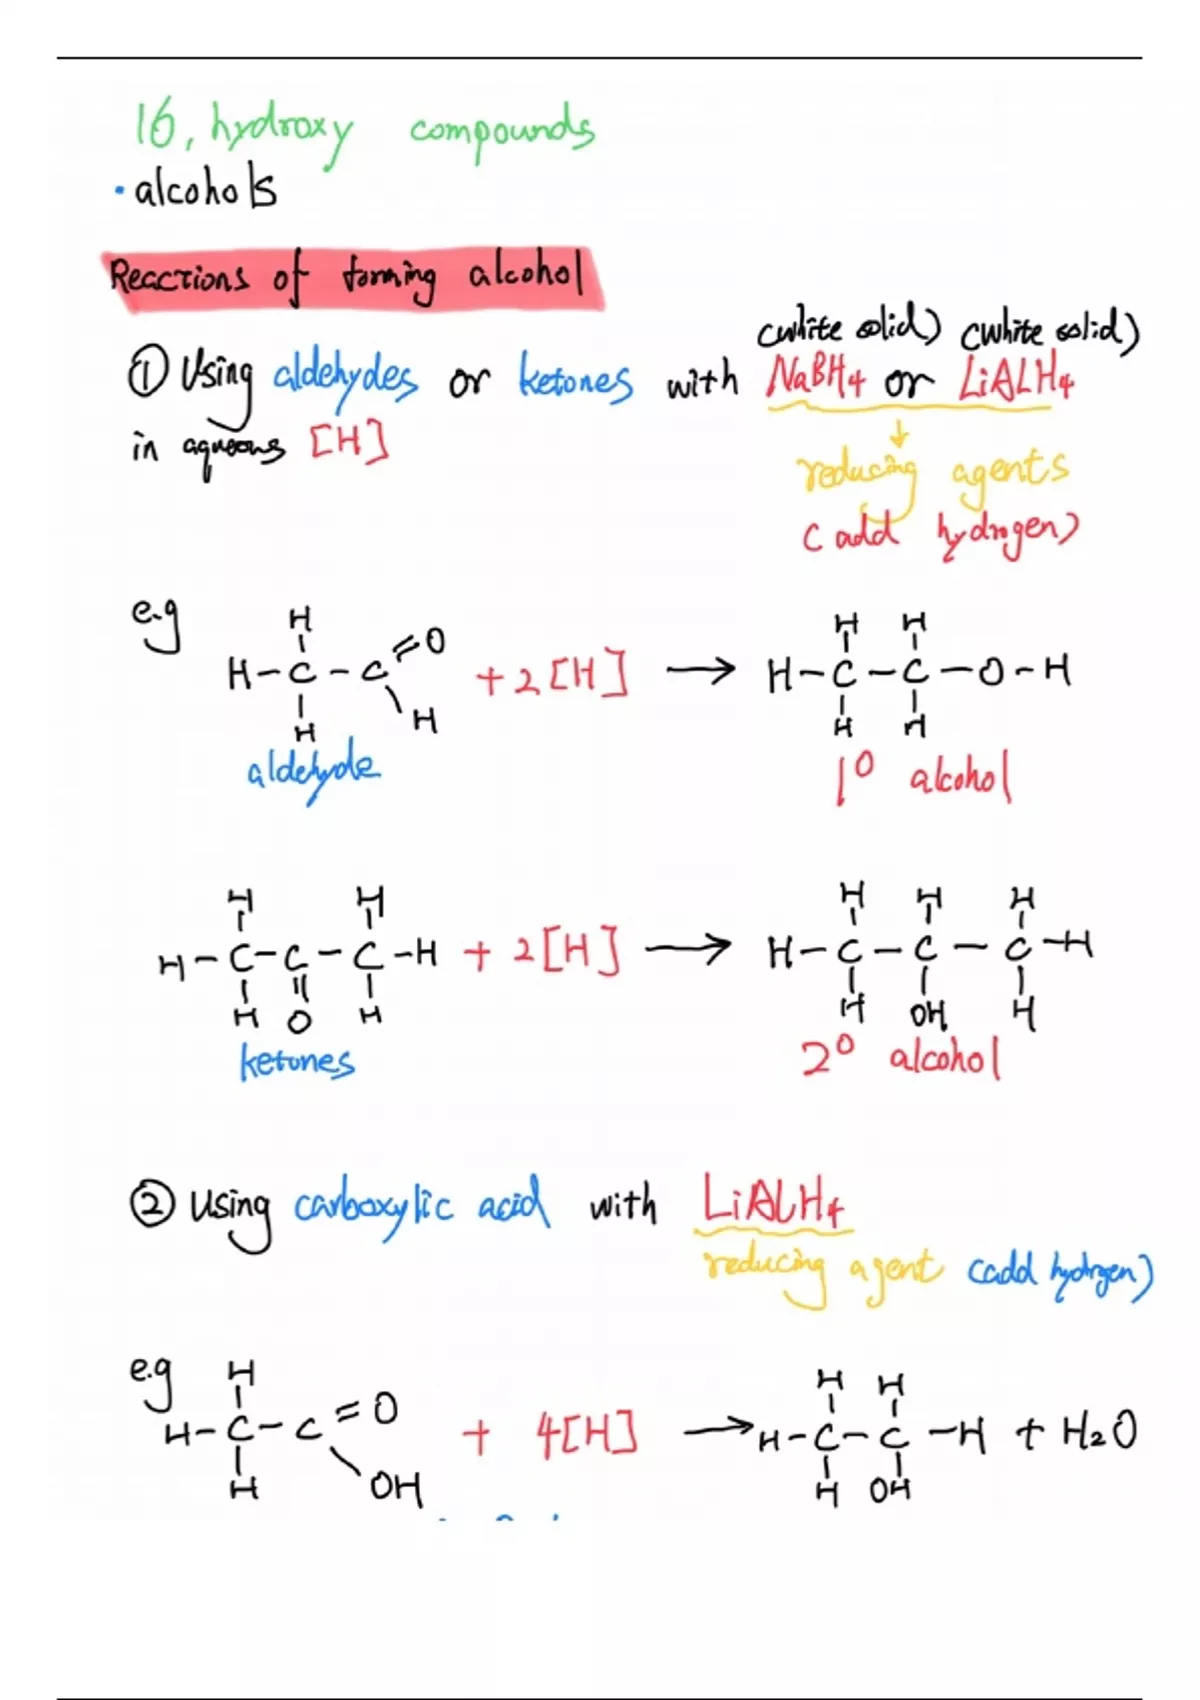 16, hydroxy compounds
• alcohols
Reactions of forming alcohol
(white solid) (white solid)
① Using aldehydes or ketones with NaBH4 or LiAlH4
in aqueous [H]
↓
reducing agents
(add hydrogen)
e.g
H H H
H-C-C=O + 2[H] → H-C-C-O-H
H H H H
aldehyde 1° alcohol
H H H H H
H-C-C-C-H + 2[H] → H-C-C-C-H
H O H H OH H
ketones 2° alcohol
② Using carboxylic acid with LiAlH4
reducing agent (add hydrogen)
e.g H H H
H-C-C=O + 4[H] → H-C-C-H + H2O
H OH H OH